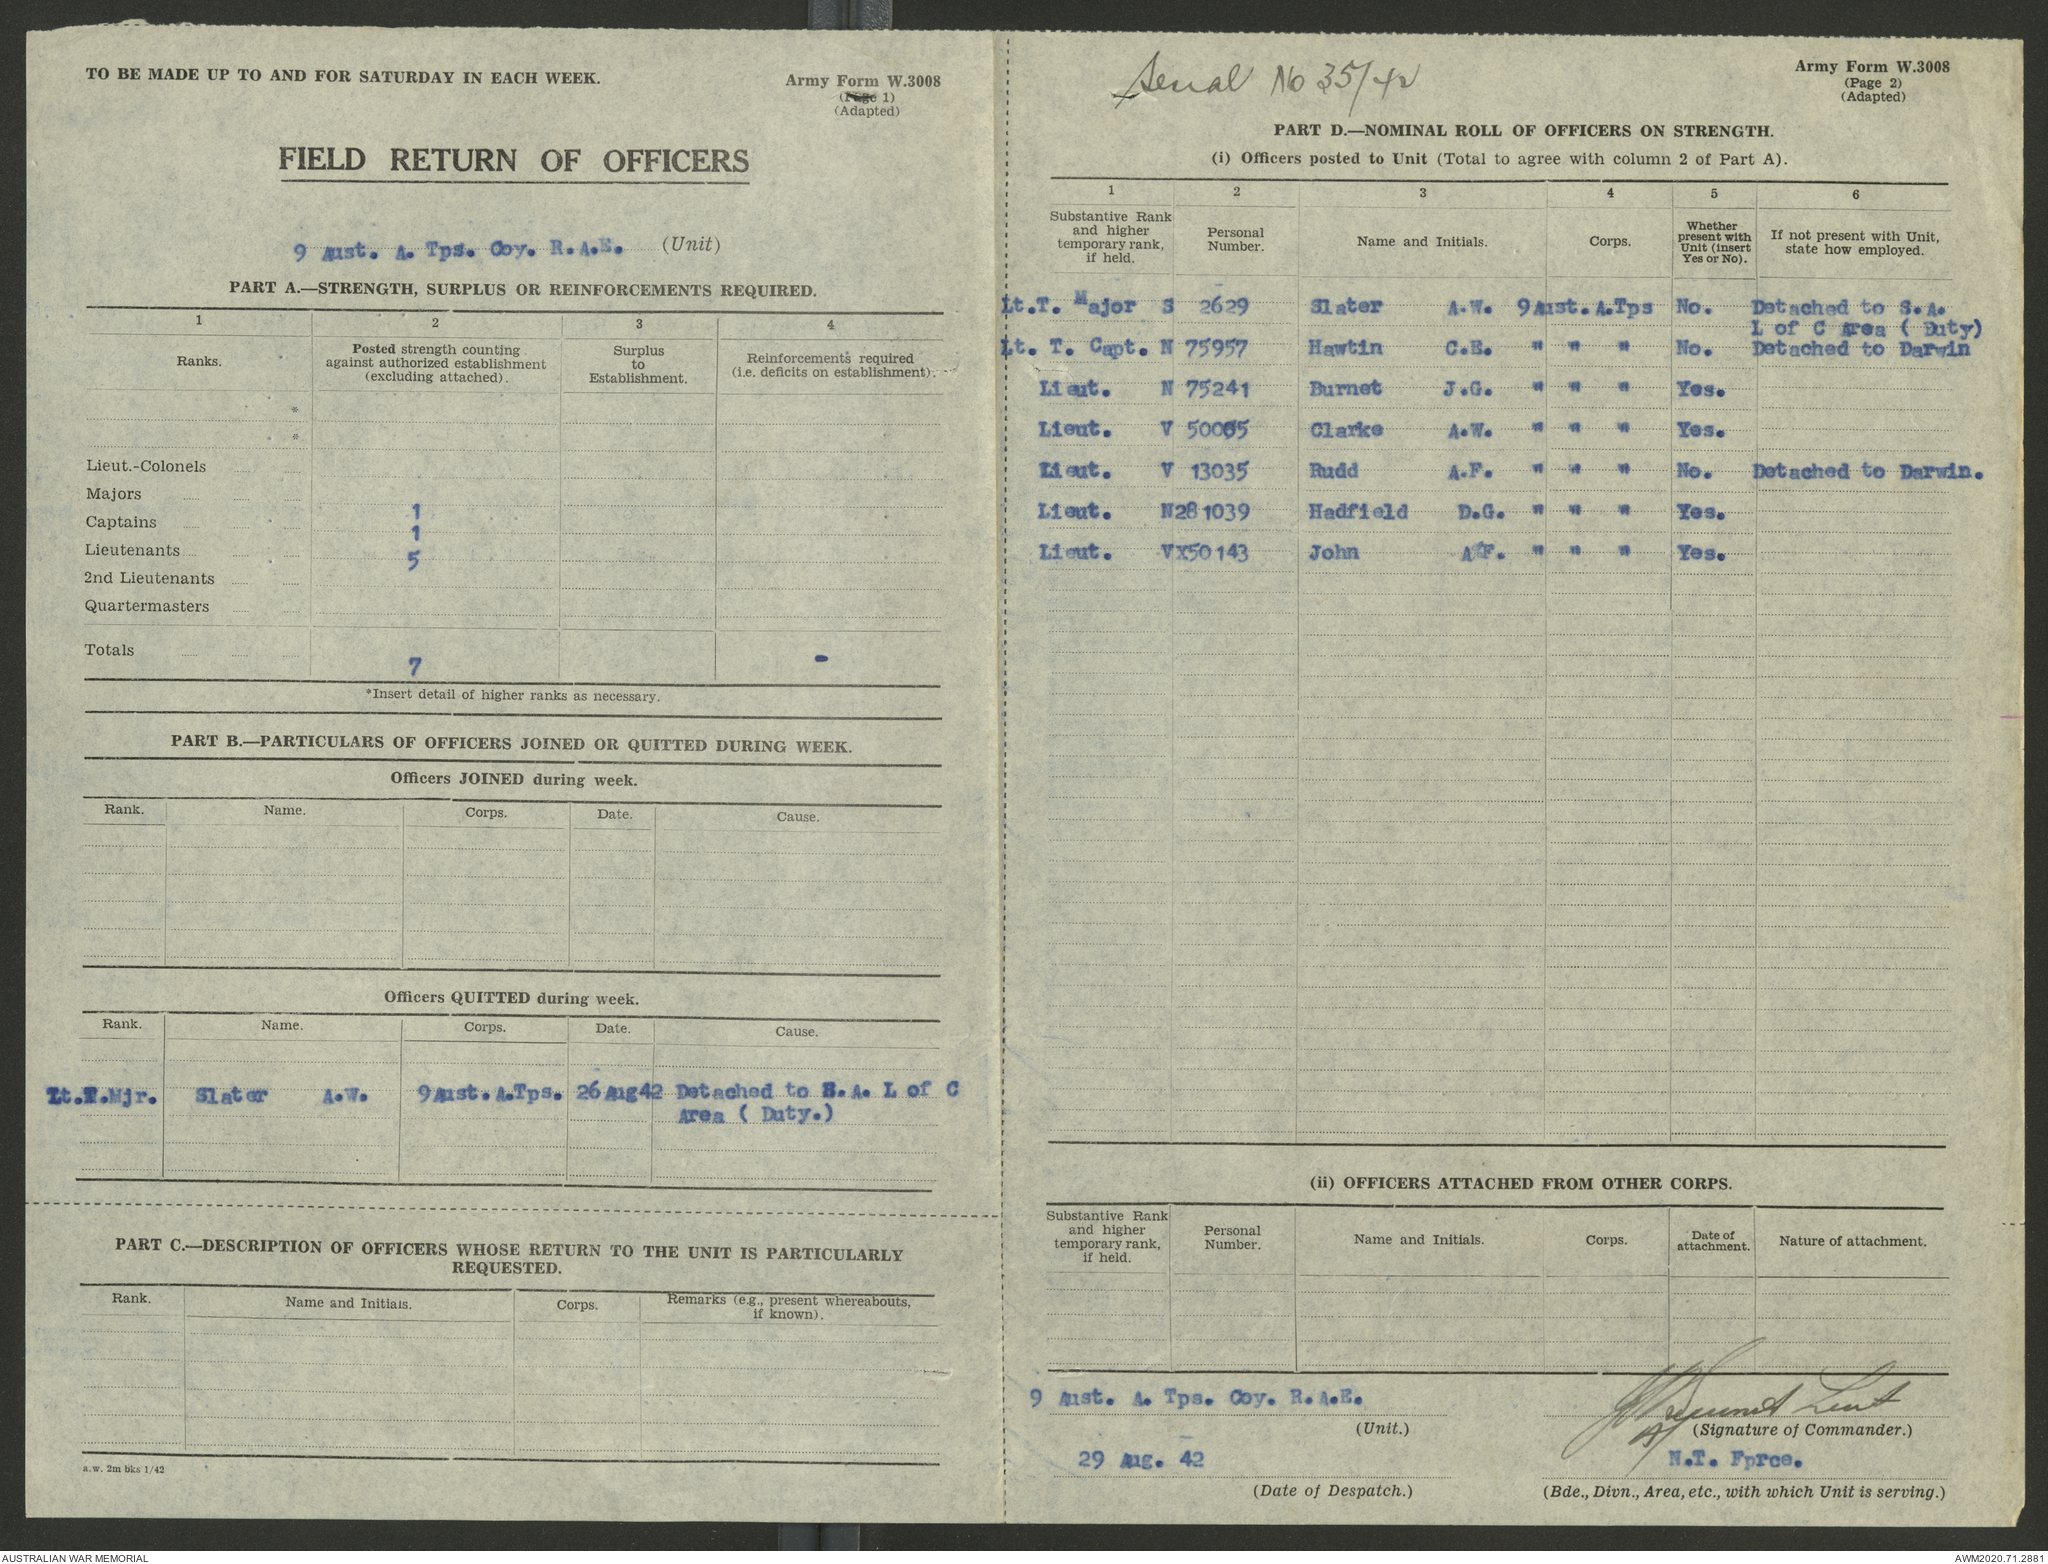 TO BE MADE UP TO AND FOR SATURDAY IN EACH WEEK.
Army Form W.3008
(Page 1)
(Adapted)
FIELD RETURN OF OFFICERS
9 Aust. A. Tps. Coy. R.A.E. (Unit)
PART A.—STRENGTH, SURPLUS OR REINFORCEMENTS REQUIRED.
1 2 3 4
Ranks. Posted strength counting against authorized establishment (excluding attached). Surplus to Establishment. Reinforcements required (i.e. deficits on establishment).
*
*
Lieut.-Colonels
Majors 1
Captains 1
Lieutenants 5
2nd Lieutenants
Quartermasters
Totals 7 -
*Insert detail of higher ranks as necessary.
PART B.—PARTICULARS OF OFFICERS JOINED OR QUITTED DURING WEEK.
Officers JOINED during week.
Rank. Name. Corps. Date. Cause.
Officers QUITTED during week.
Rank. Name. Corps. Date. Cause.
Lt.T.Mjr. Slater A.W. 9Aust.A.Tps. 26Aug42 Detached to S.A. L of C
Area ( Duty.)
PART C.—DESCRIPTION OF OFFICERS WHOSE RETURN TO THE UNIT IS PARTICULARLY
REQUESTED.
Rank. Name and Initials. Corps. Remarks (e.g., present whereabouts, if known).
a.w. 2m bks 1/42
Serial No 35/42
Army Form W.3008
(Page 2)
(Adapted)
PART D.—NOMINAL ROLL OF OFFICERS ON STRENGTH.
(i) Officers posted to Unit (Total to agree with column 2 of Part A).
1 2 3 4 5 6
Substantive Rank and higher temporary rank, if held. Personal Number. Name and Initials. Corps. Whether present with Unit (insert Yes or No). If not present with Unit, state how employed.
Lt.T. Major S 2629 Slater A.W. 9Aust.A.Tps No. Detached to S.A.
L of C Area ( Duty)
Lt. T. Capt. N 75957 Hawtin C.E. " " " No. Detached to Darwin
Lieut. N 75241 Burnet J.G. " " " Yes.
Lieut. V 50065 Clarke A.W. " " " Yes.
Lieut. V 13035 Rudd A.F. " " " No. Detached to Darwin.
Lieut. N281039 Hadfield D.G. " " " Yes.
Lieut. VX50143 John A.F. " " " Yes.
(ii) OFFICERS ATTACHED FROM OTHER CORPS.
Substantive Rank and higher temporary rank, if held. Personal Number. Name and Initials. Corps. Date of attachment. Nature of attachment.
9 Aust. A. Tps. Coy. R.A.E.
(Unit.)
Lieut
(Signature of Commander.)
29 Aug. 42
(Date of Despatch.)
N.T. Fprce.
(Bde., Divn., Area, etc., with which Unit is serving.)
AUSTRALIAN WAR MEMORIAL
AWM2020.71.2881